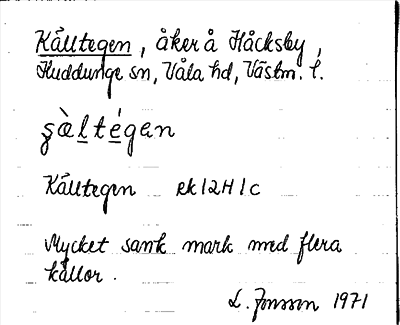 Källtegen, åker å Håcksby,
Huddunge sn, Våla hd, Västm. l.
s̷àltégan
Källtegen ek 12H 1c
Mycket sank mark med flera
källor.
L. Jonsson 1971